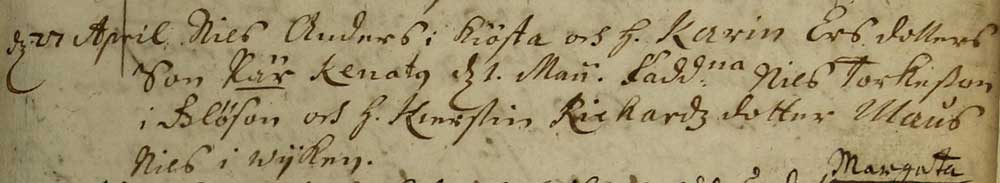 dz 27 April. Nils Anders i Kiösta och h. Karin Ers dotters
Son Pär Renatq dz 1. Maii. Fadd:na Nils Torkeson
i Blöson och h. Kierstin Richardz dotter Måns
Nils i Wijken.
Margeta